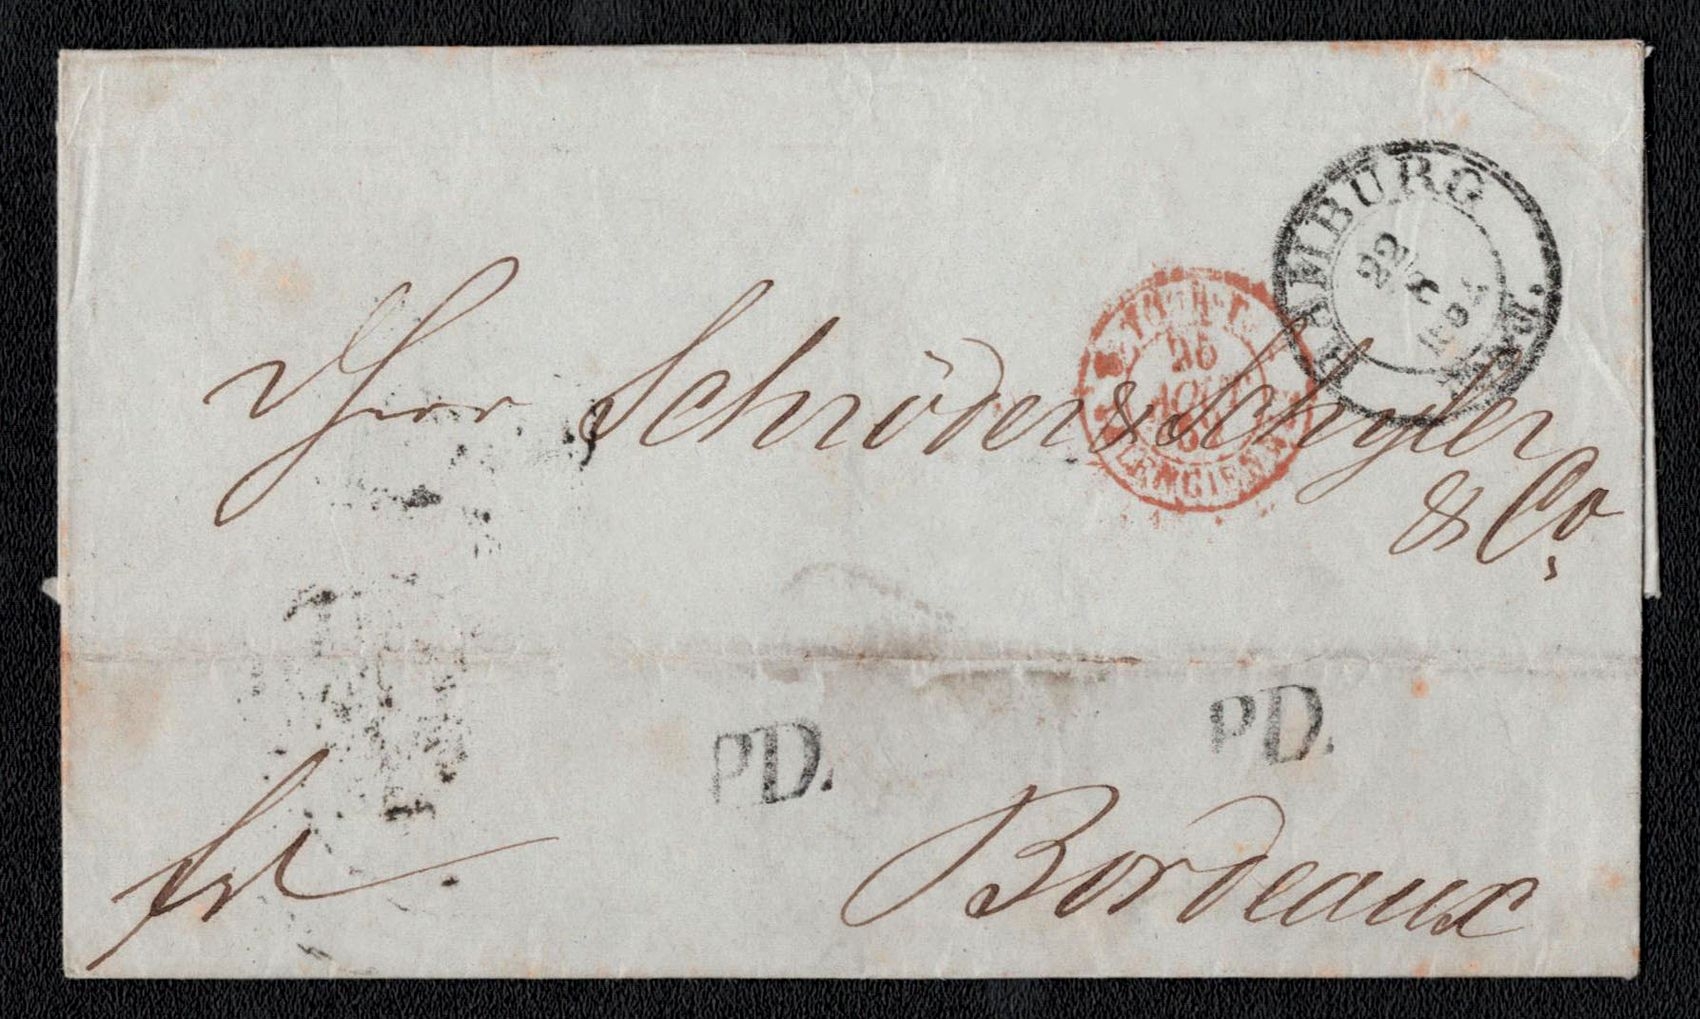 HAMBURG
22
BELGIQUE
25
AOUT
VALENCIENNES
Herr Schröder & Schyler
& Co.
PD.
PD.
frt
Bordeaux